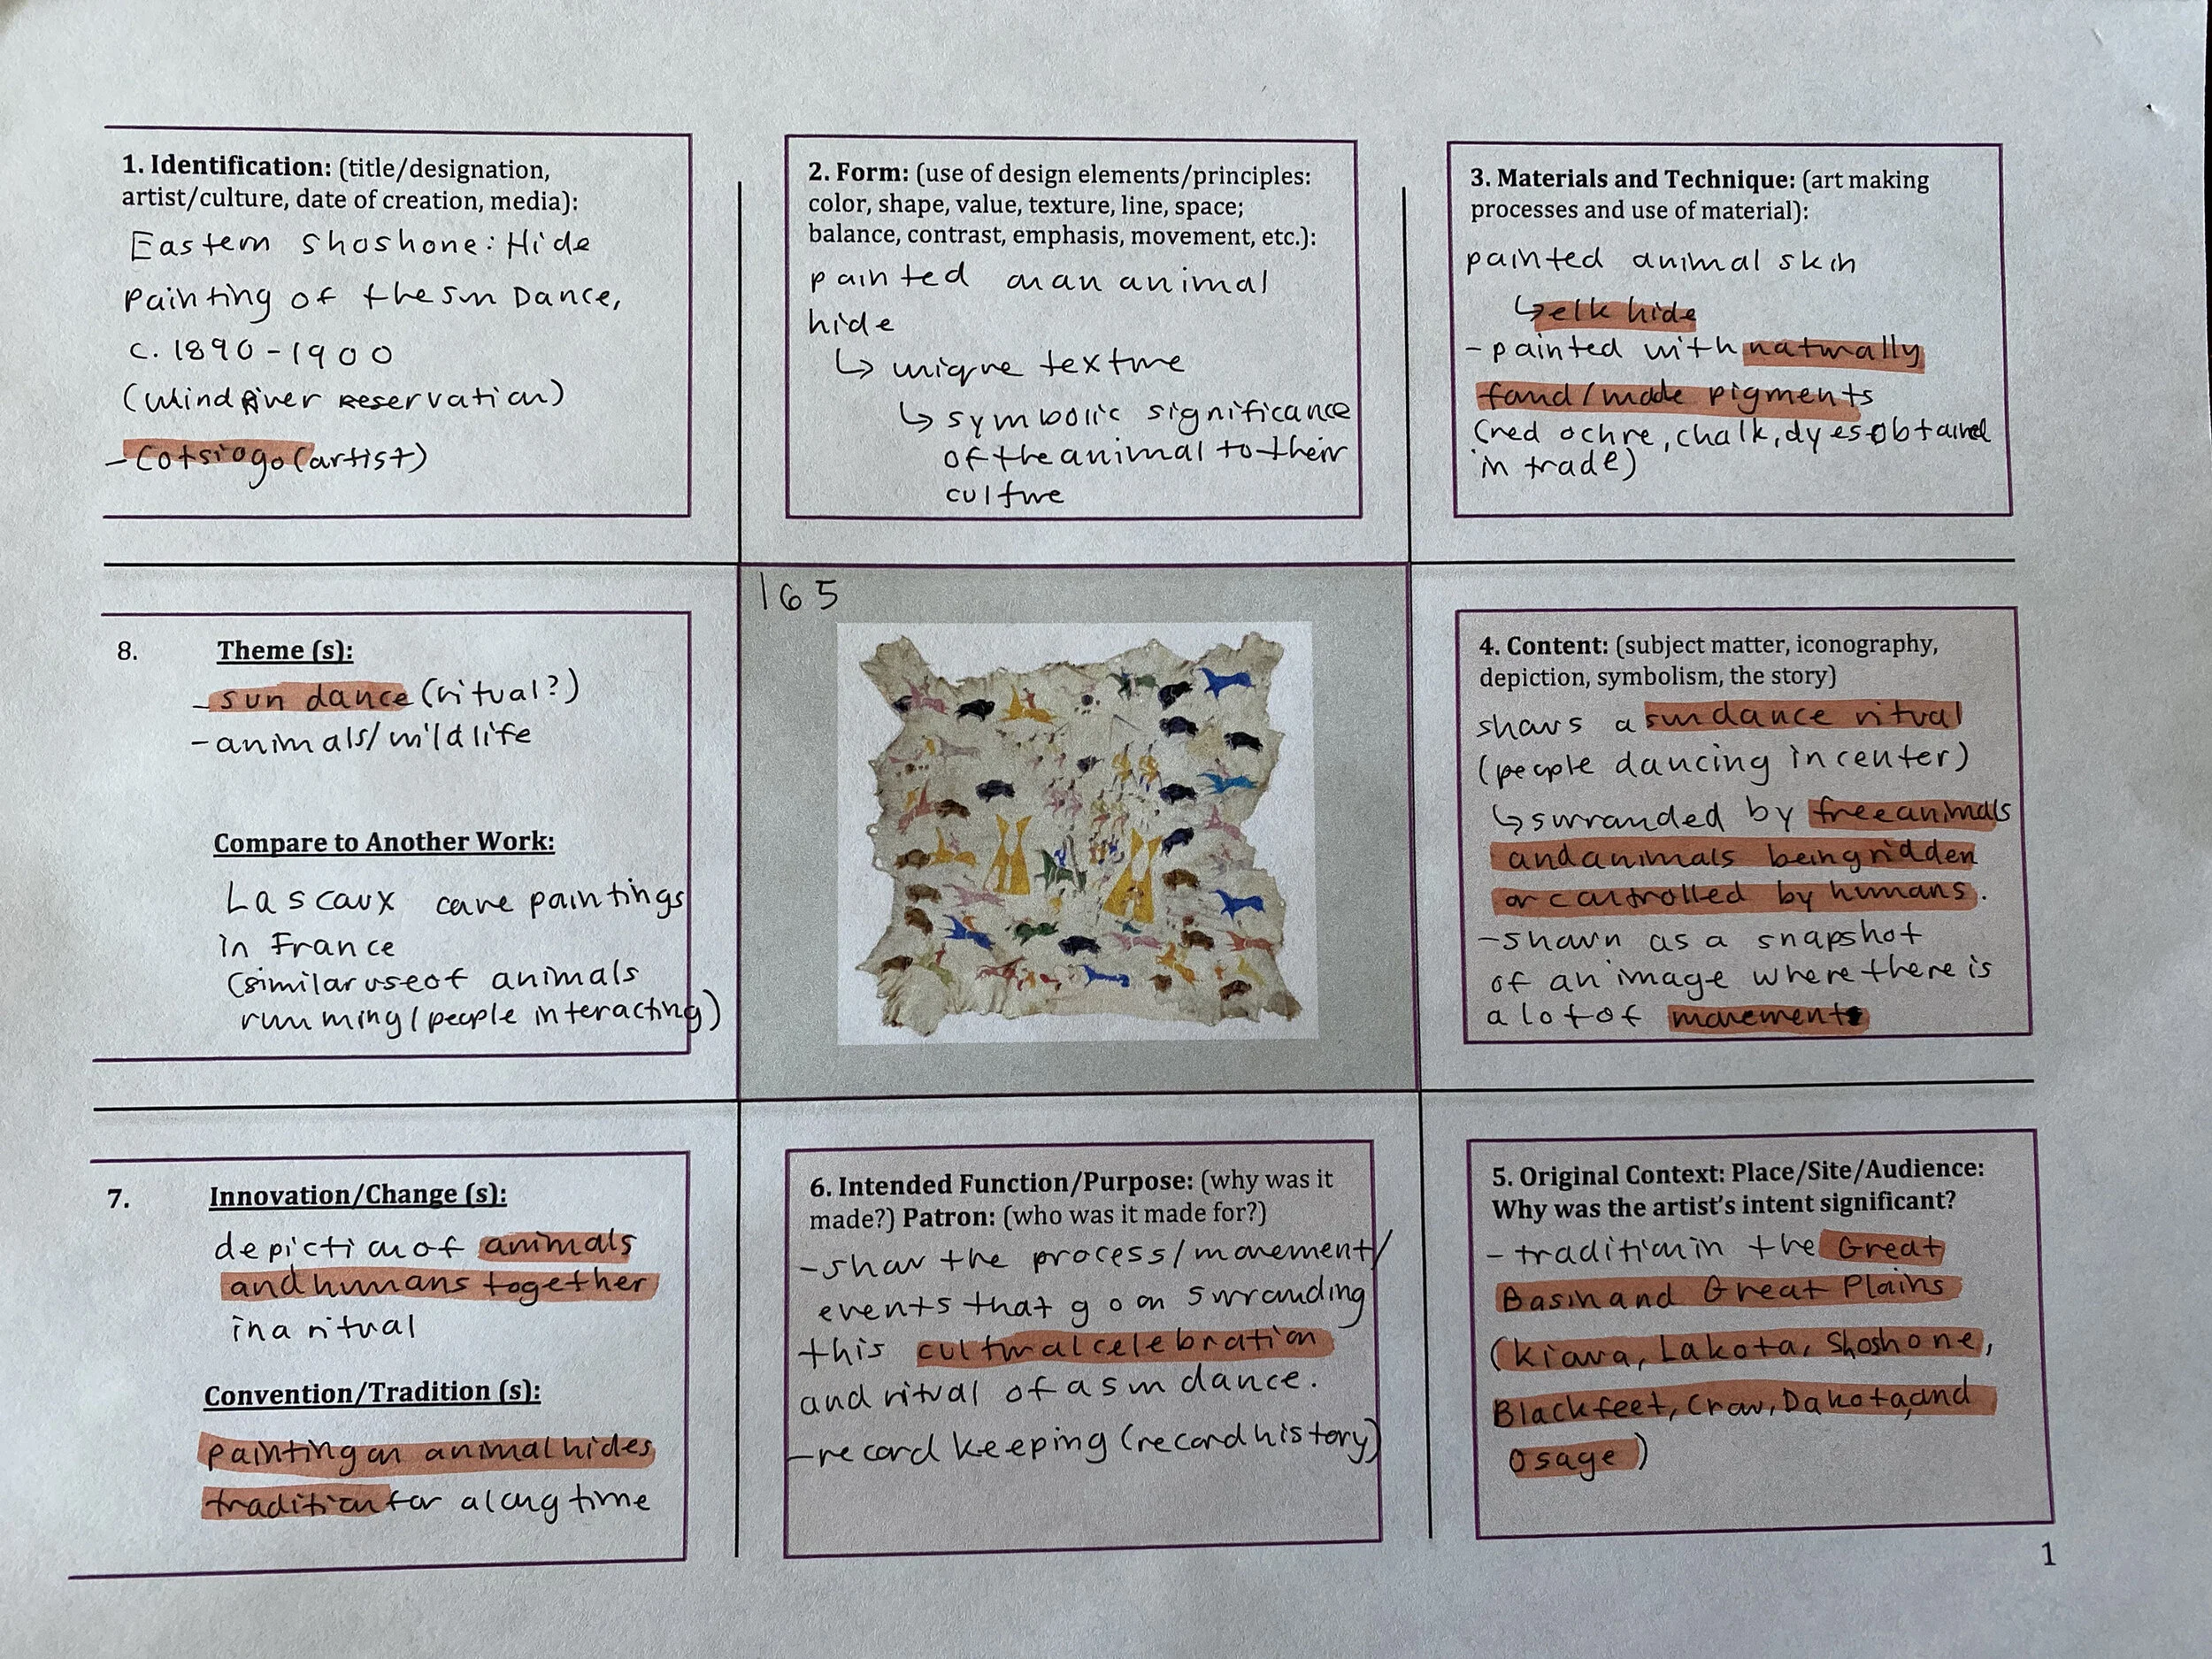 1. Identification: (title/designation,
artist/culture, date of creation, media):
Eastern Shoshone: Hide
Painting of the Sun Dance,
c. 1890-1900
(Wind River Reservation)
- Cotsiogo (artist)
2. Form: (use of design elements/principles:
color, shape, value, texture, line, space;
balance, contrast, emphasis, movement, etc.):
painted on an animal
hide
↳ unique texture
↳ symbolic significance
of the animal to their
culture
3. Materials and Technique: (art making
processes and use of material):
painted animal skin
↳ elk hide
- painted with naturally
found/made pigments
(red ochre, chalk, dyes obtained
in trade)
8. Theme (s):
- sun dance (ritual?)
- animals/wildlife
Compare to Another Work:
Lascaux cave paintings
in France
(similar use of animals
running/people interacting)
165
4. Content: (subject matter, iconography,
depiction, symbolism, the story)
shows a sundance ritual
(people dancing in center)
↳ surrounded by free animals
and animals being ridden
or controlled by humans.
- shown as a snapshot
of an image where there is
a lot of movement
7. Innovation/Change (s):
depiction of animals
and humans together
in a ritual
Convention/Tradition (s):
painting on animal hides
tradition for a long time
6. Intended Function/Purpose: (why was it
made?) Patron: (who was it made for?)
- show the process/movement/
events that go on surrounding
this cultural celebration
and ritual of a sun dance.
- record keeping (record history)
5. Original Context: Place/Site/Audience:
Why was the artist's intent significant?
- tradition in the Great
Basin and Great Plains
(Kiowa, Lakota, Shoshone,
Blackfeet, Crow, Dakota, and
Osage)
1